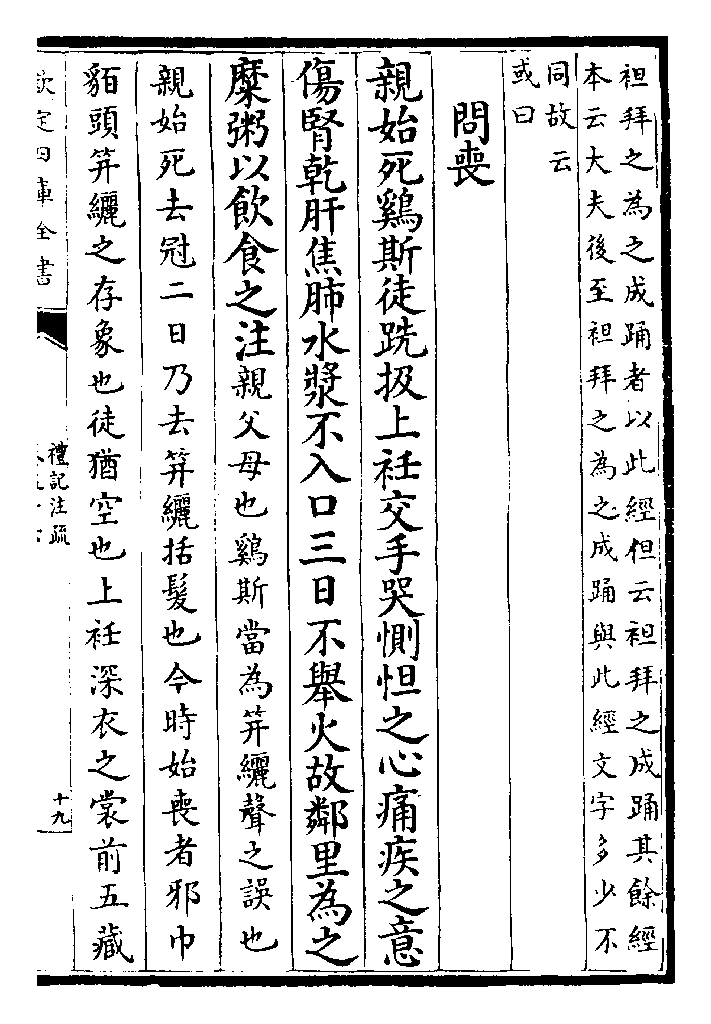 袒拜之為之成踊者以此經但云袒拜之成踊其餘經
本云大夫後至袒拜之為之成踊與此經文字多少不
同故云
或曰
問喪
親始死鷄斯徒跣扱上衽交手哭惻怛之心痛疾之意
傷腎乾肝焦肺水漿不入口三日不舉火故鄰里為之
糜粥以飲食之注親父母也鷄斯當為筓纚聲之誤也
親始死去冠二日乃去筓纚括髮也今時始喪者邪巾
貊頭筓纚之存象也徒猶空也上衽深衣之裳前五藏
欽定四庫全書
禮記注疏
十九